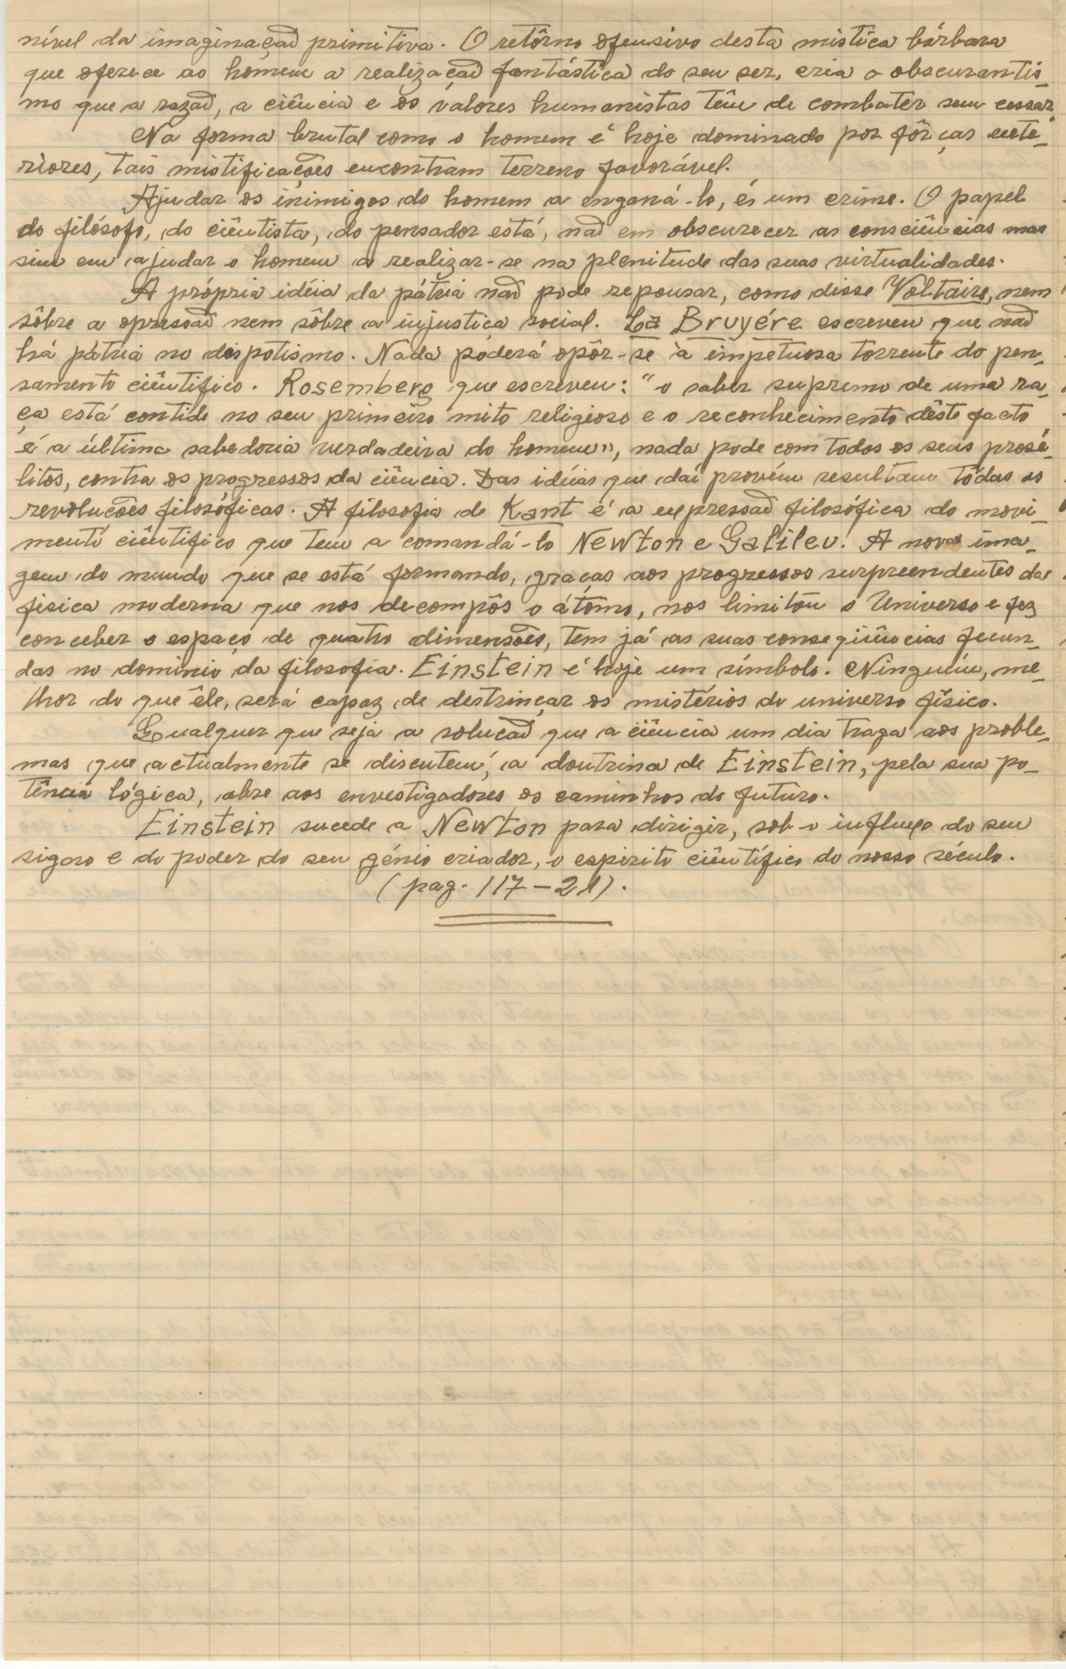 nível da imaginação primitiva. O retôrno ofensivo desta mistica bárbara
que oferece ao homem a realização fantástica do seu ser, cria o obscurantis-
mo que a razão, a ciência e os valores humanistas têm de combater sem cessar.
Na forma brutal como o homem é hoje dominado por fôrças exte-
riores, tais mistificações encontram terreno favorável.
Ajudar os inimigos do homem a enganá-lo, é um crime. O papel
do filósofo, do ciêntista, do pensador está, não em obscurecer as consciências mas
sim em ajudar o homem a realizar-se na plenitude das suas virtualidades.
A própria idéia da pátria não pode repousar, como disse Voltaire, nem
sôbre a opressão nem sôbre a injustica social. La Bruyére escreveu que não
há pátria no dispotismo. Nada poderá opôr-se à impetuosa torrente do pen-
samento ciêntifico. Rosemberg que escreveu: "o saber supremo de uma ra-
ça está contido no seu primeiro mito religioso e o reconhecimento dêste facto
é a última sabedoria verdadeira do homem", nada pode com todos os seus prosé-
litos, contra os progressos da ciência. Das idéias que daí provém resultam tôdas as
revoluções filosóficas. A filosofia de Kant é a expressão filosófica do movi-
mento ciêntifico que tem a comandá-lo Newton e Galileu. A nova ima-
gem do mundo que se está formando, graças aos progressos surpreendentes da
fisica moderna que nos decompôs o átomo, nos limitou o Universo e fez
conceber o espaço de quatro dimensões, tem já as suas conseqüências fecun-
das no dominio da filosofia. Einstein é hoje um símbolo. Ninguém, me-
lhor do que êle, será capaz de destrinçar os mistérios do universo físico.
Qualquer que seja a solução que a ciência um dia traga aos proble-
mas que actualmente se discutem, a doutrina de Einstein, pela sua po-
tência lógica, abre aos envestigadores os caminhos do futuro.
Einstein sucede a Newton para dirigir, sob o influxo do seu
rigoro e do poder do seu génio criador, o espirito ciêntífico do nosso século.
(pag. 117-21).